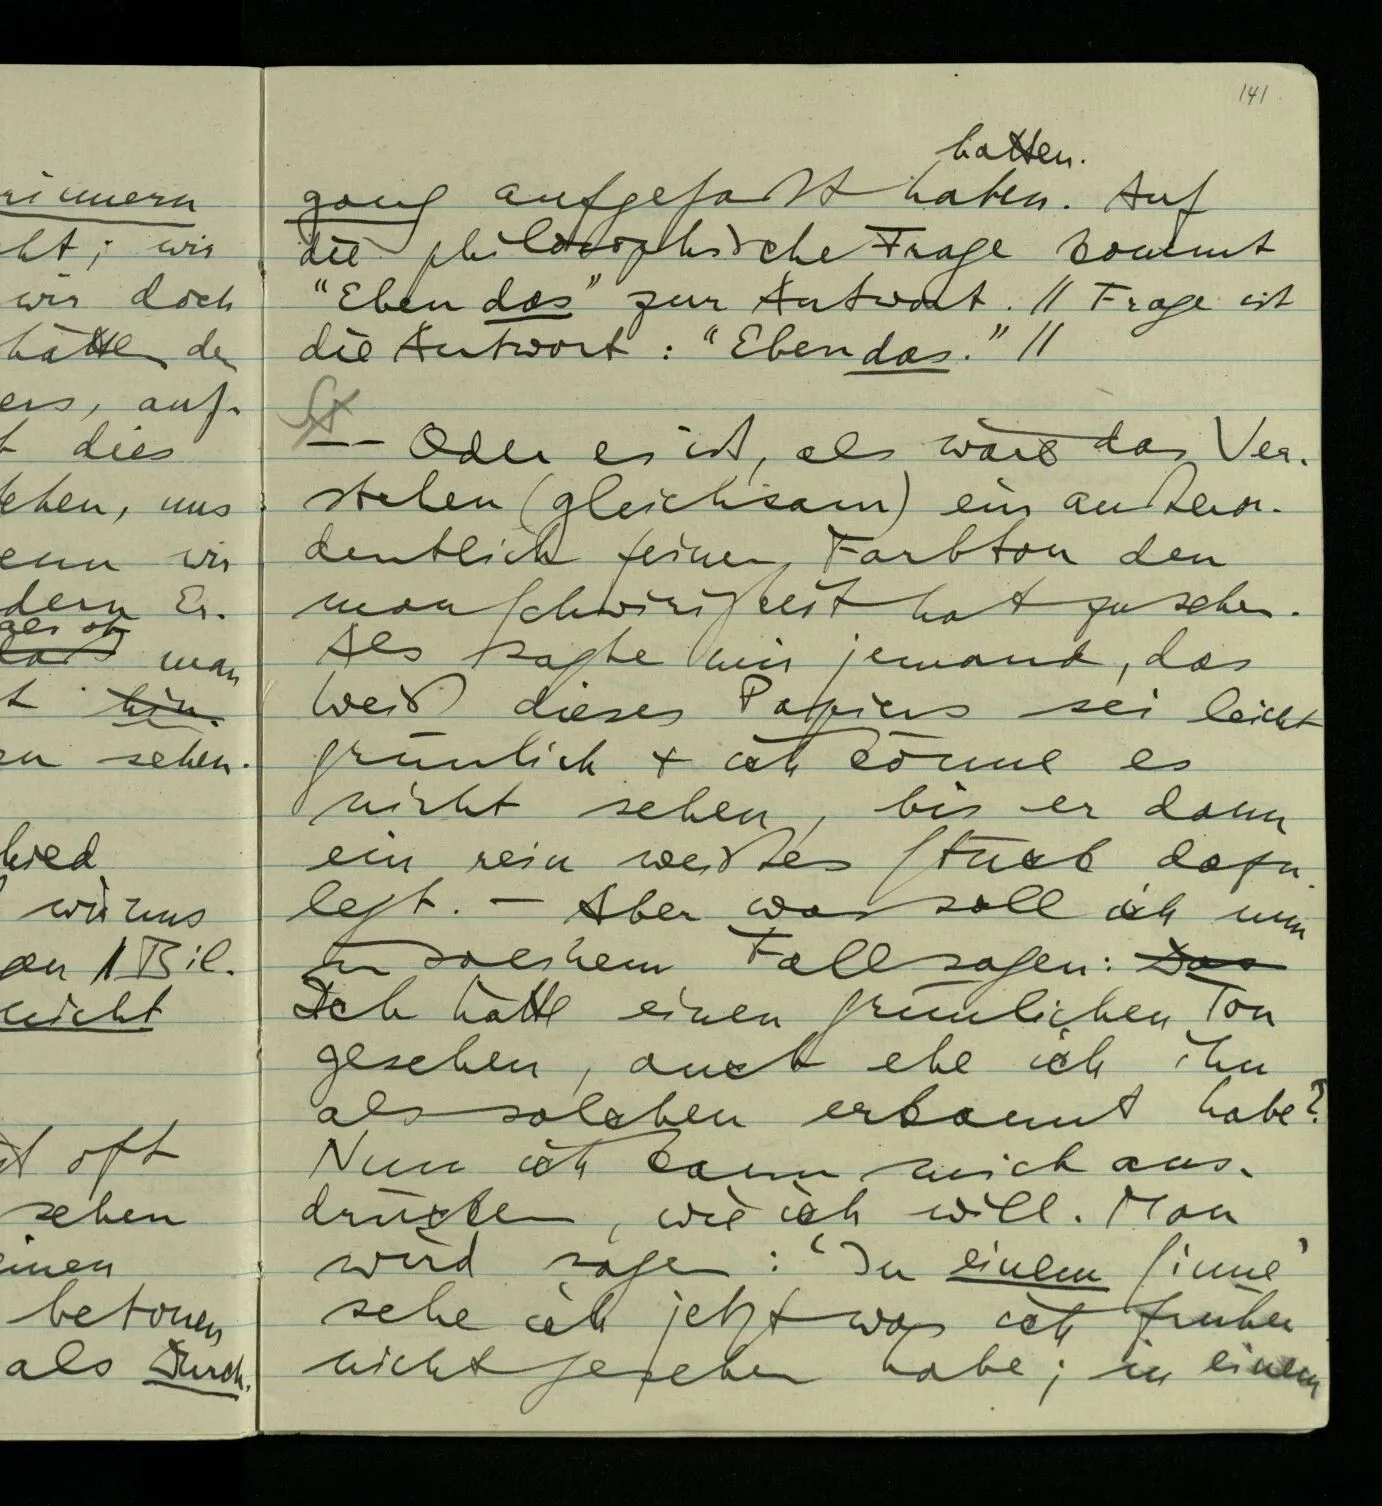 141
hatten.
gang aufgefaßt haben. Auf
die philosophische Frage kommt
"Eben das" zur Antwort. // Frage ist
die Antwort: "Eben das." //
–– Oder es ist, als wäre das Ver-
stehen (gleichsam) ein außeror-
dentlich feiner Farbton den
man Schwierigkeit hat zu sehen.
Als sagte mir jemand, das
Weiß dieses Papiers sei leicht
grünlich + ich könne es
nicht sehen, bis er dann
ein rein weißes Stück dazu
legt. – Aber was soll ich nun
in solchem Fall sagen: Das
Ich hätte einen grünlichen Ton
gesehen, auch ehe ich ihn
als solchen erkannt habe?
Nun ich kann mich aus-
drücken, wie ich will. Man
wird sagen: 'In einem Sinne'
sehe ich jetzt was ich früher
nicht gesehen habe; in einem
rinnern
ht; wir
wir doch
hätten der
ers, auf-
t dies
ehen, uns
enn wir
dern Er-
als ob
daß man
t hin.
en sehen.
hied
wir uns
an // Bil-
nicht
t oft
sehen
einen
betonen
als Durch-